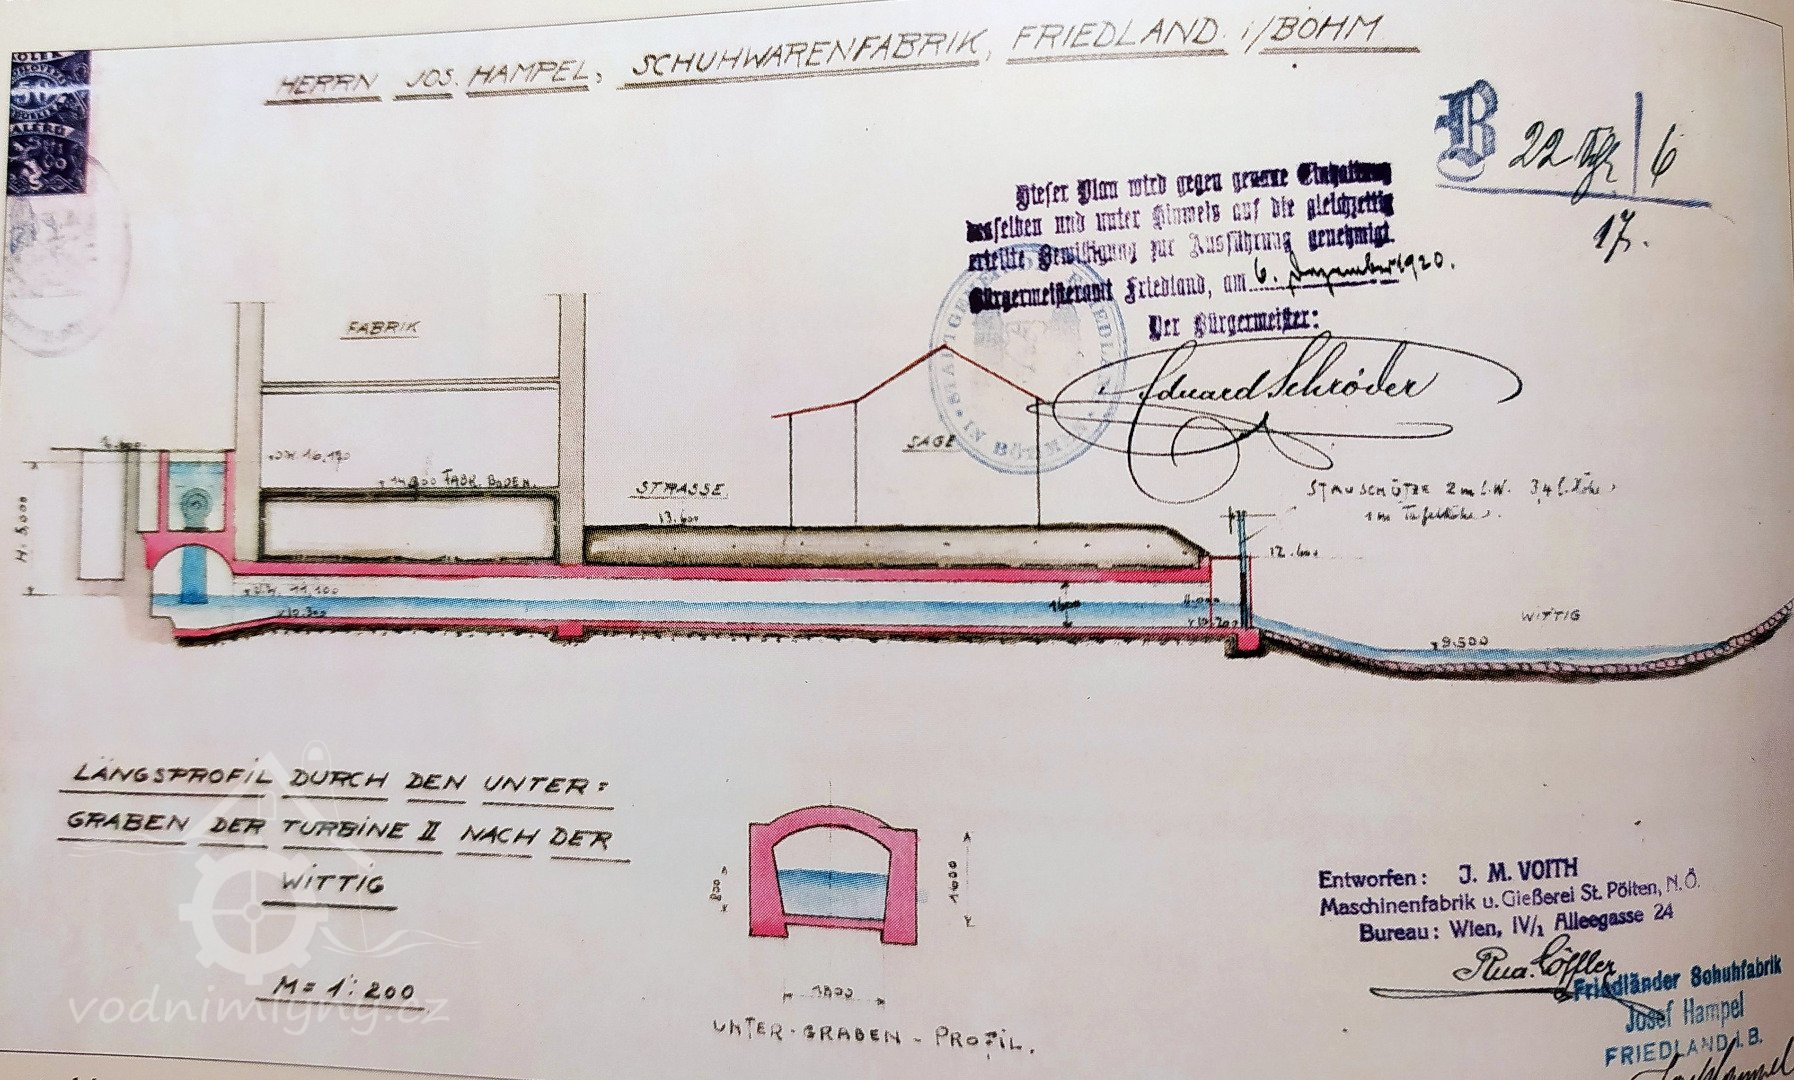 HERRN JOS. HAMPEL, SCHUHWARENFABRIK, FRIEDLAND. i/BÖHM
B 22 6
17.
Dieser Plan wird gegen genaue Einhaltung
desselben und unter Hinweis auf die gleichzeitig
erteilte Bewilligung zur Ausführung genehmigt.
Bürgermeisteramt Friedland, am 6. Dezember 1920.
Der Bürgermeister:
Eduard Schröder
IN BÖHMEN
FABRIK
O.W. 16,170
14,800 FABR. BODEN.
H. 5,000
STRASSE
13.600
SÄGE
STAUSCHÜTZE 2 m l.W. 3,4 l. Höhe
1 m Tafelhöhe.
12.600
U.W. 11,100
10.300
1600
11.000
10.200
WITTIG
9.500
LÄNGSPROFIL DURCH DEN UNTER=
GRABEN DER TURBINE II NACH DER
WITTIG
M = 1:200
vodnimlyny.cz
800
1600
1800
UNTER-GRABEN-PROFIL.
Entworfen: J. M. VOITH
Maschinenfabrik u. Gießerei St. Pölten, N.Ö.
Bureau: Wien, IV/1 Alleegasse 24
Friedländer Schuhfabrik
Josef Hampel
FRIEDLAND I. B.